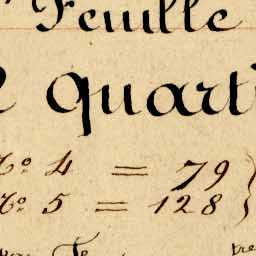 Feuille
quart
N.º 4 = 79
N.º 5 = 128